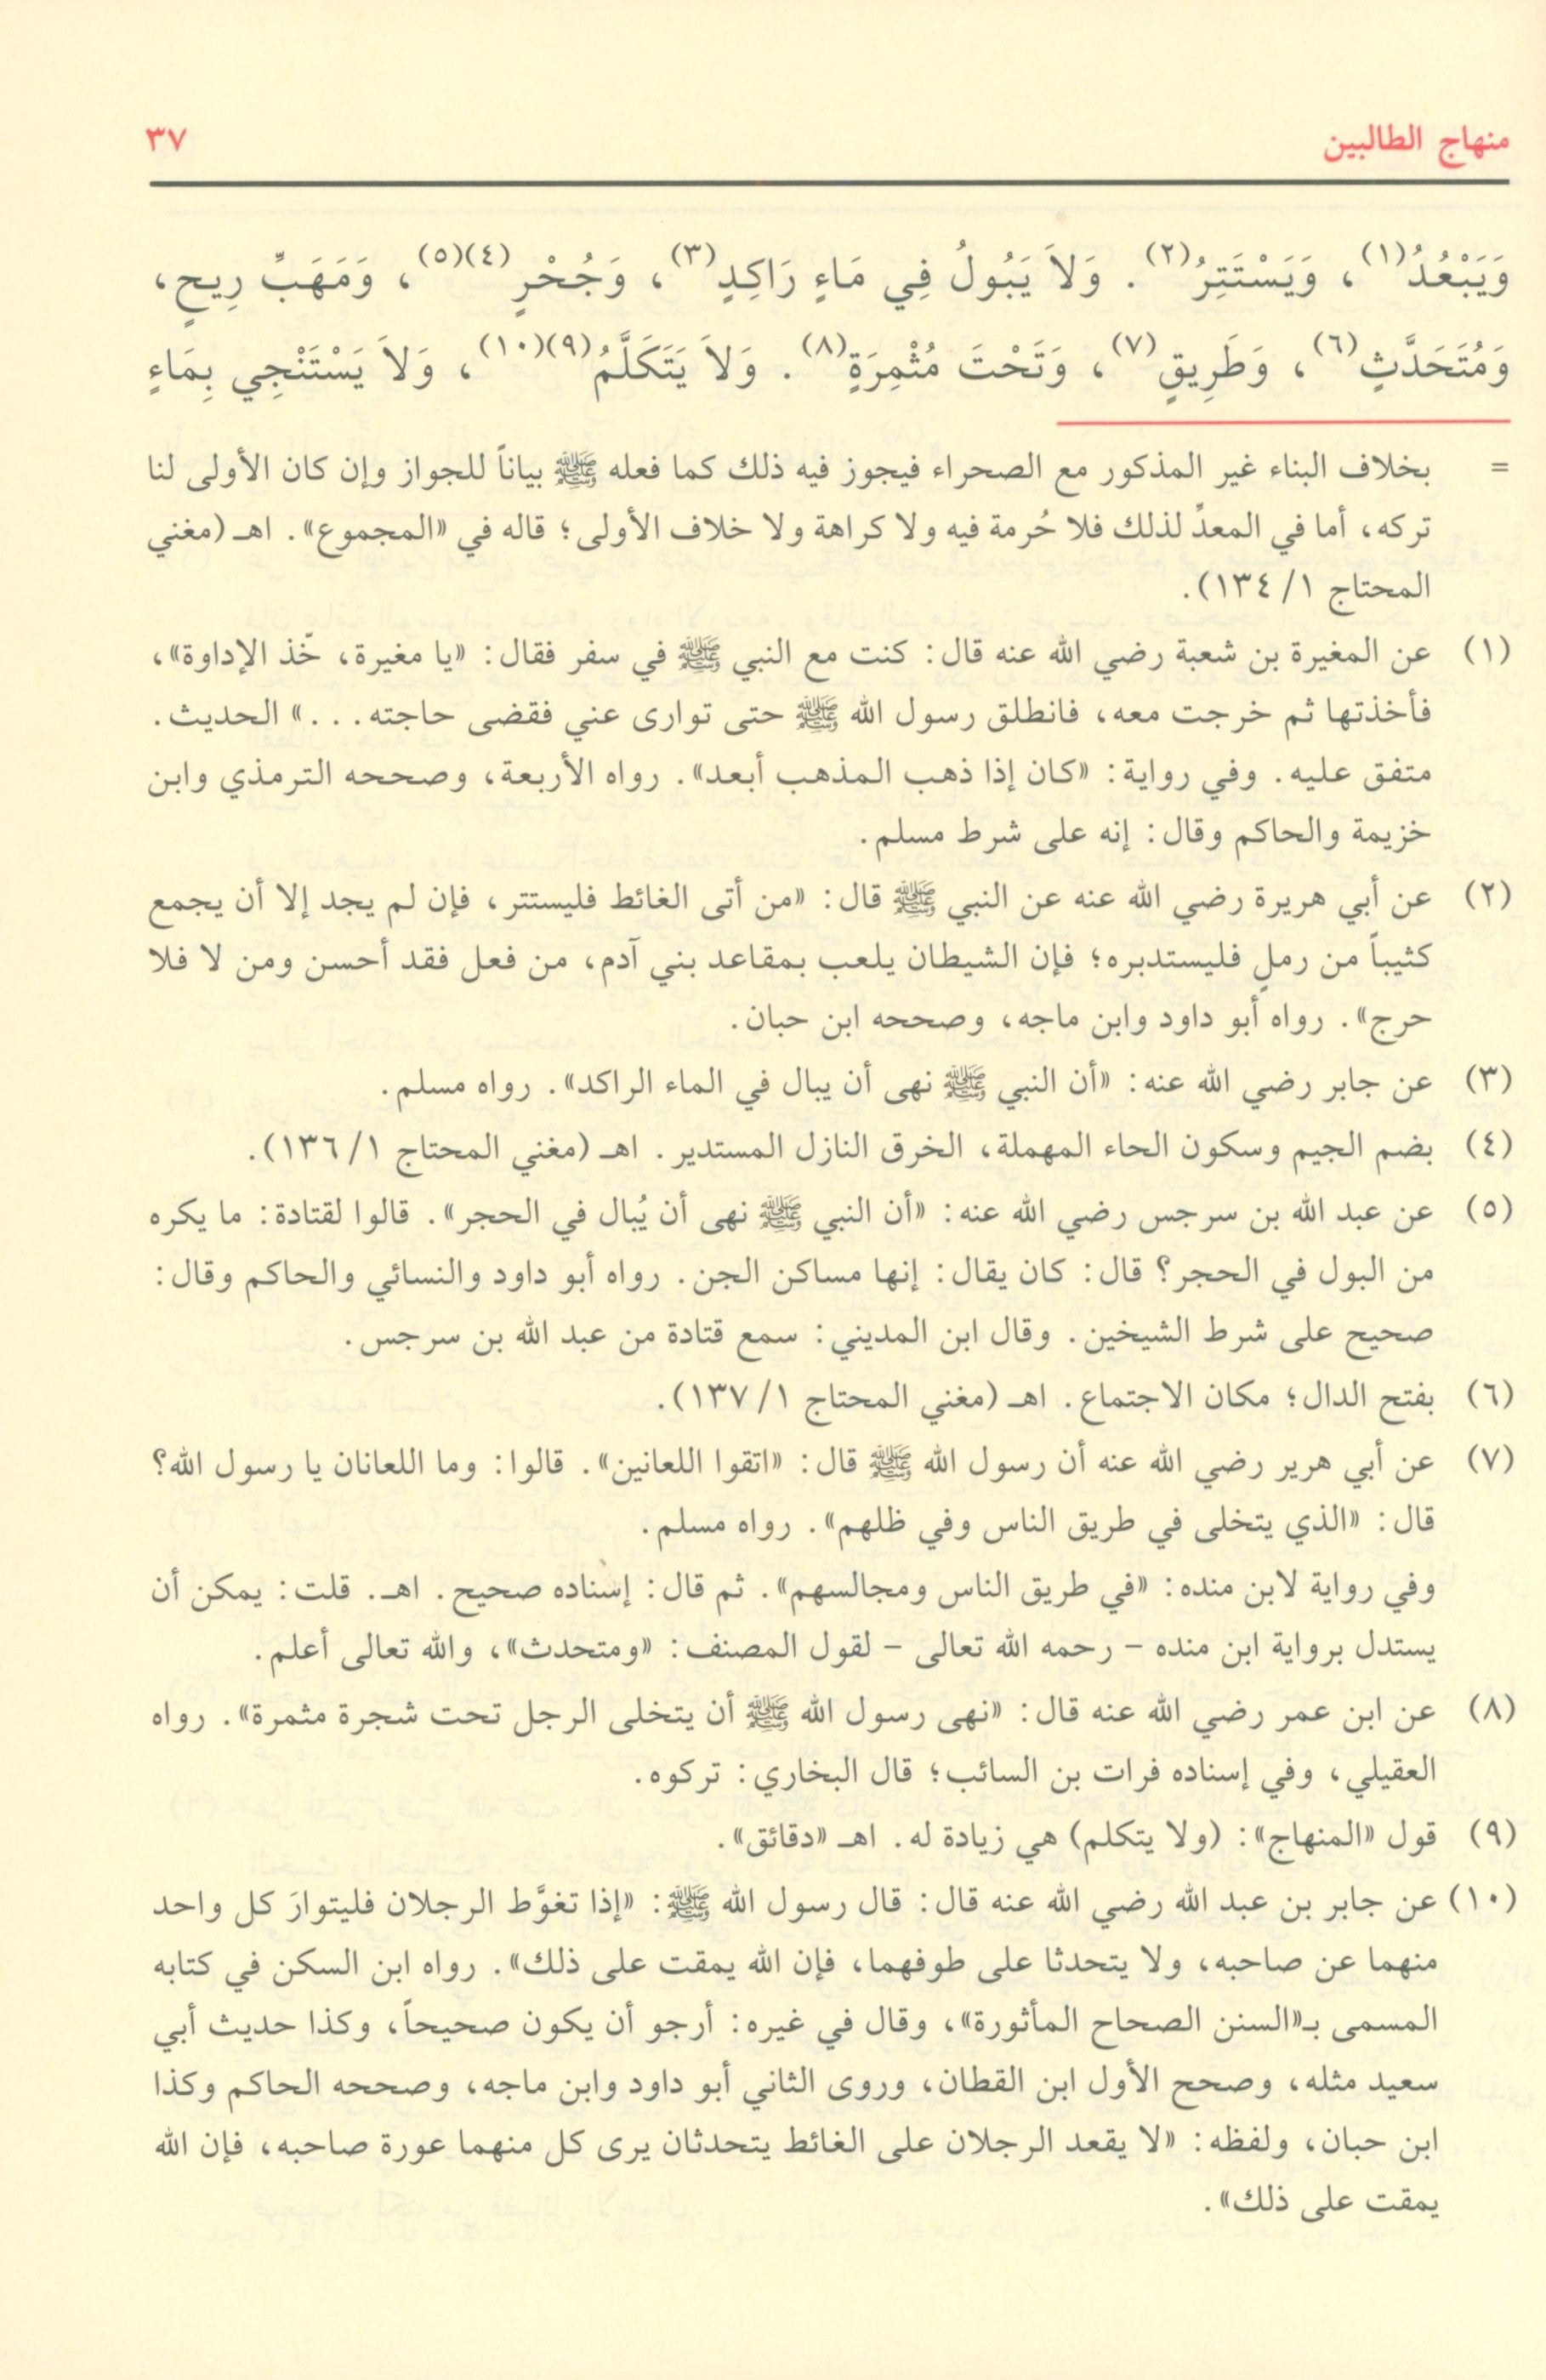 منهاج الطالبين ٣٧
وَيَبْعُدُ(١)، وَيَسْتَتِرُ(٢). وَلاَ يَبُولُ فِي مَاءٍ رَاكِدٍ(٣)، وَجُحْرٍ(٤)(٥)، وَمَهَبِّ رِيحٍ،
وَمُتَحَدَّثٍ(٦)، وَطَرِيقٍ(٧)، وَتَحْتَ مُثْمِرَةٍ(٨). وَلاَ يَتَكَلَّمُ(٩)(١٠)، وَلاَ يَسْتَنْجِي بِمَاءٍ
= بخلاف البناء غير المذكور مع الصحراء فيجوز فيه ذلك كما فعله ﷺ بياناً للجواز وإن كان الأولى لنا
تركه، أما في المعدِّ لذلك فلا حُرمة فيه ولا كراهة ولا خلاف الأولى؛ قاله في «المجموع». اهـ (مغني
المحتاج ١/ ١٣٤).
(١) عن المغيرة بن شعبة رضي الله عنه قال: كنت مع النبي ﷺ في سفر فقال: «يا مغيرة، خّذ الإداوة»،
فأخذتها ثم خرجت معه، فانطلق رسول الله ﷺ حتى توارى عني فقضى حاجته...» الحديث.
متفق عليه. وفي رواية: «كان إذا ذهب المذهب أبعد». رواه الأربعة، وصححه الترمذي وابن
خزيمة والحاكم وقال: إنه على شرط مسلم.
(٢) عن أبي هريرة رضي الله عنه عن النبي ﷺ قال: «من أتى الغائط فليستتر، فإن لم يجد إلا أن يجمع
كثيباً من رملٍ فليستدبره؛ فإن الشيطان يلعب بمقاعد بني آدم، من فعل فقد أحسن ومن لا فلا
حرج». رواه أبو داود وابن ماجه، وصححه ابن حبان.
(٣) عن جابر رضي الله عنه: «أن النبي ﷺ نهى أن يبال في الماء الراكد». رواه مسلم.
(٤) بضم الجيم وسكون الحاء المهملة، الخرق النازل المستدير. اهـ (مغني المحتاج ١/ ١٣٦).
(٥) عن عبد الله بن سرجس رضي الله عنه: «أن النبي ﷺ نهى أن يُبال في الحجر». قالوا لقتادة: ما يكره
من البول في الحجر؟ قال: كان يقال: إنها مساكن الجن. رواه أبو داود والنسائي والحاكم وقال:
صحيح على شرط الشيخين. وقال ابن المديني: سمع قتادة من عبد الله بن سرجس.
(٦) بفتح الدال؛ مكان الاجتماع. اهـ (مغني المحتاج ١/ ١٣٧).
(٧) عن أبي هرير رضي الله عنه أن رسول الله ﷺ قال: «اتقوا اللعانين». قالوا: وما اللعانان يا رسول الله؟
قال: «الذي يتخلى في طريق الناس وفي ظلهم». رواه مسلم.
وفي رواية لابن منده: «في طريق الناس ومجالسهم». ثم قال: إسناده صحيح. اهـ. قلت: يمكن أن
يستدل برواية ابن منده - رحمه الله تعالى - لقول المصنف: «ومتحدث»، والله تعالى أعلم.
(٨) عن ابن عمر رضي الله عنه قال: «نهى رسول الله ﷺ أن يتخلى الرجل تحت شجرة مثمرة». رواه
العقيلي، وفي إسناده فرات بن السائب؛ قال البخاري: تركوه.
(٩) قول «المنهاج»: (ولا يتكلم) هي زيادة له. اهـ «دقائق».
(١٠) عن جابر بن عبد الله رضي الله عنه قال: قال رسول الله ﷺ: «إذا تغوَّط الرجلان فليتوارَ كل واحد
منهما عن صاحبه، ولا يتحدثا على طوفهما، فإن الله يمقت على ذلك». رواه ابن السكن في كتابه
المسمى بـ«السنن الصحاح المأثورة»، وقال في غيره: أرجو أن يكون صحيحاً، وكذا حديث أبي
سعيد مثله، وصحح الأول ابن القطان، وروى الثاني أبو داود وابن ماجه، وصححه الحاكم وكذا
ابن حبان، ولفظه: «لا يقعد الرجلان على الغائط يتحدثان يرى كل منهما عورة صاحبه، فإن الله
يمقت على ذلك».